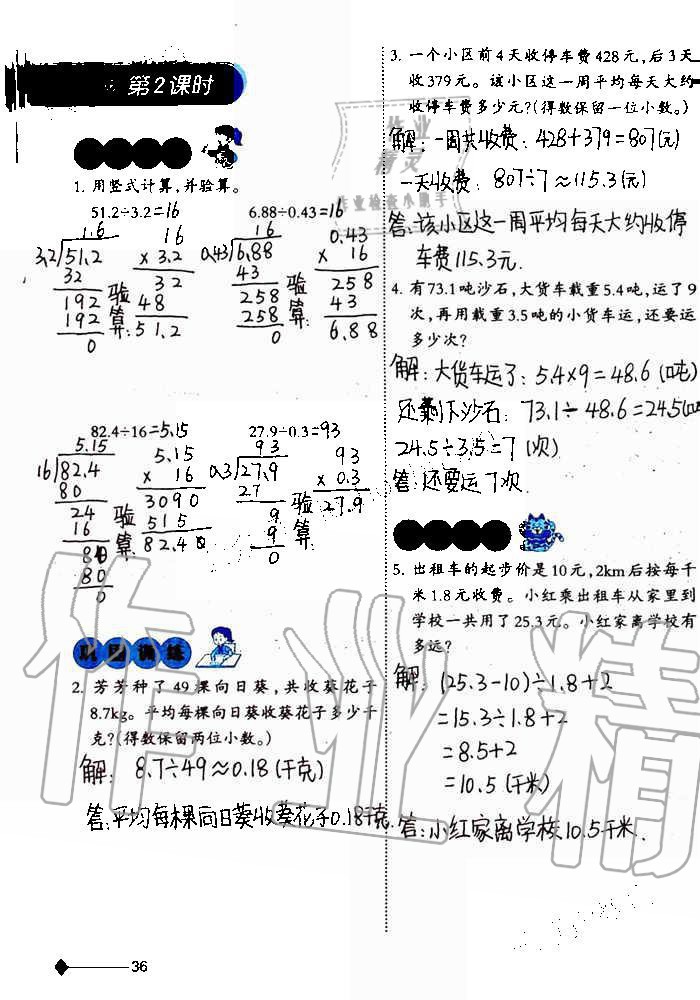 第2课时
1. 用竖式计算,并验算。
51.2÷3.2=16
6.88÷0.43=16
1.6
3.2 51.2
32
192
192
0
验算:
16
× 3.2
32
48
51.2
16
0.43 6.88
43
258
258
0
验算:
0.43
× 16
258
43
6.88
82.4÷16=5.15
27.9÷0.3=93
5.15
16 82.4
80
24
16
80
80
0
验算:
5.15
× 16
3090
515
82.40
93
0.3 27.9
27
9
9
0
验算:
93
× 0.3
27.9
巩固训练
2. 芳芳种了 49 棵向日葵,共收葵花子
8.7kg。平均每棵向日葵收葵花子多少千
克?(得数保留两位小数。)
解: 8.7÷49≈0.18(千克)
答:平均每棵向日葵收葵花子0.18千克.
36
3. 一个小区前4天收停车费428元,后3天
收379元。该小区这一周平均每天大约
收停车费多少元?(得数保留一位小数。)
解:一周共收费:428+379=807(元)
一天收费: 807÷7≈115.3(元)
答:该小区这一周平均每天大约收停
车费115.3元.
4. 有73.1吨沙石,大货车载重5.4吨,运了9
次,再用载重3.5吨的小货车运,还要运
多少次?
解:大货车运了:5.4×9=48.6(吨)
还剩下沙石:73.1÷48.6=24.5(吨
24.5÷3.5=7(次)
答:还要运7次.
5. 出租车的起步价是10元,2km后按每千
米1.8元收费。小红乘出租车从家里到
学校一共用了25.3元。小红家离学校有
多远?
解: (25.3-10)÷1.8+2
=15.3÷1.8+2
=8.5+2
=10.5(千米)
答:小红家离学校10.5千米.
作业精灵
作业检查小助手
作业精